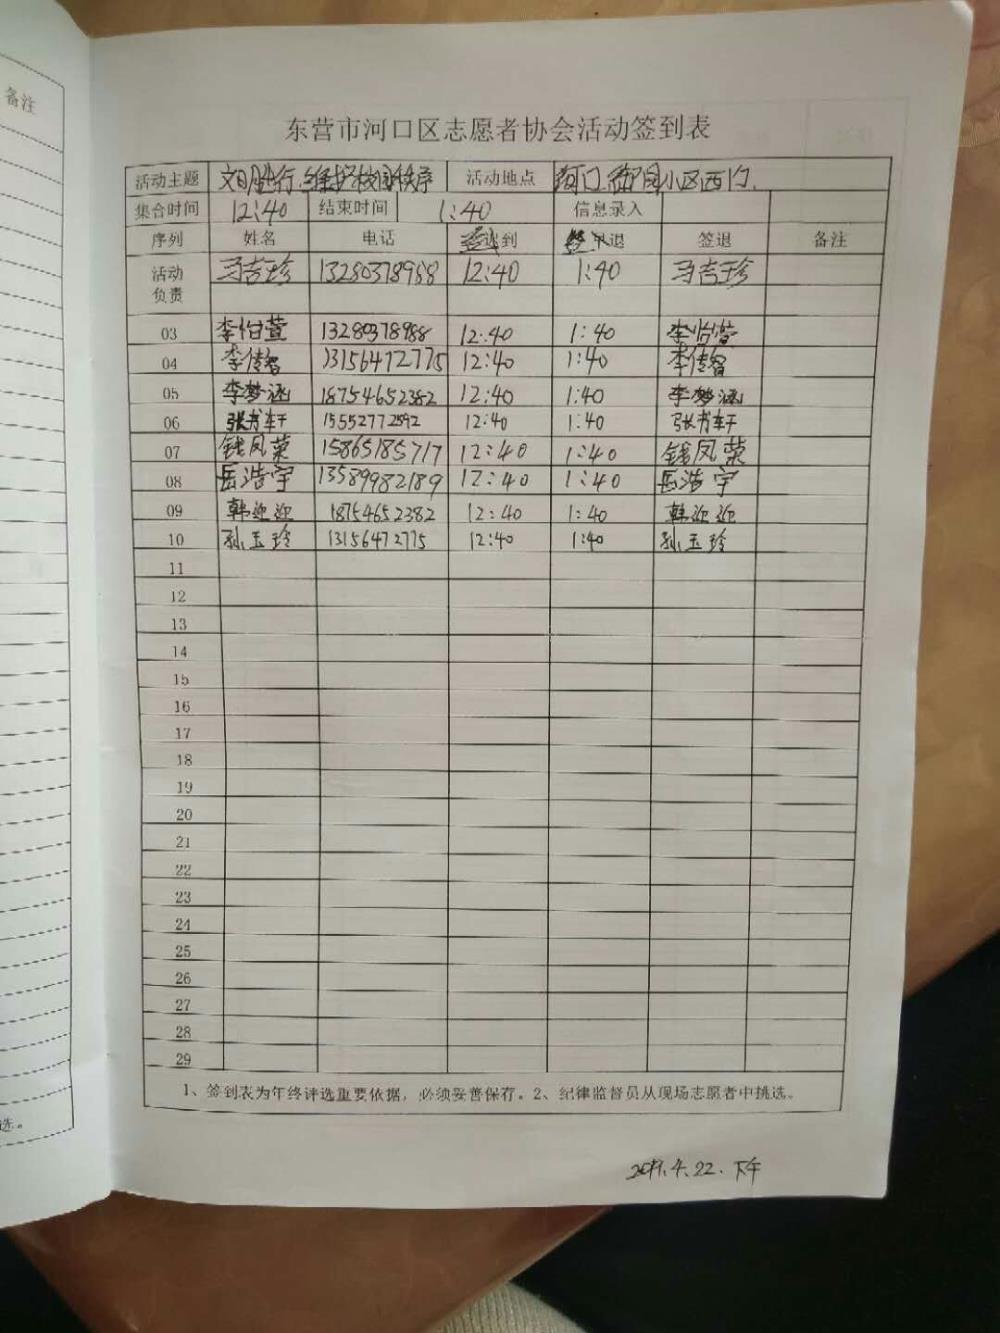 备注
东营市河口区志愿者协会活动签到表
活动主题 文明出行、维护校园秩序 活动地点 河口御园小区西门.
集合时间 12:40 结束时间 1:40 信息录入
序列 姓名 电话 到 退 签退 备注
活动负责 马吉珍 13280378988 12:40 1:40 马吉珍
03 李怡萱 13280378988 12:40 1:40 李怡萱
04 李传智 13156472775 12:40 1:40 李传智
05 李梦涵 18754652382 12:40 1:40 李梦涵
06 张书轩 15552772892 12:40 1:40 张书轩
07 钱凤荣 15865185717 12:40 1:40 钱凤荣
08 岳浩宇 13589982189 12:40 1:40 岳浩宇
09 韩迎迎 18754652382 12:40 1:40 韩迎迎
10 孙玉玲 13156472775 12:40 1:40 孙玉玲
11
12
13
14
15
16
17
18
19
20
21
22
23
24
25
26
27
28
29
1、签到表为年终评选重要依据，必须妥善保存。2、纪律监督员从现场志愿者中挑选。
选。
2019.4.22.下午